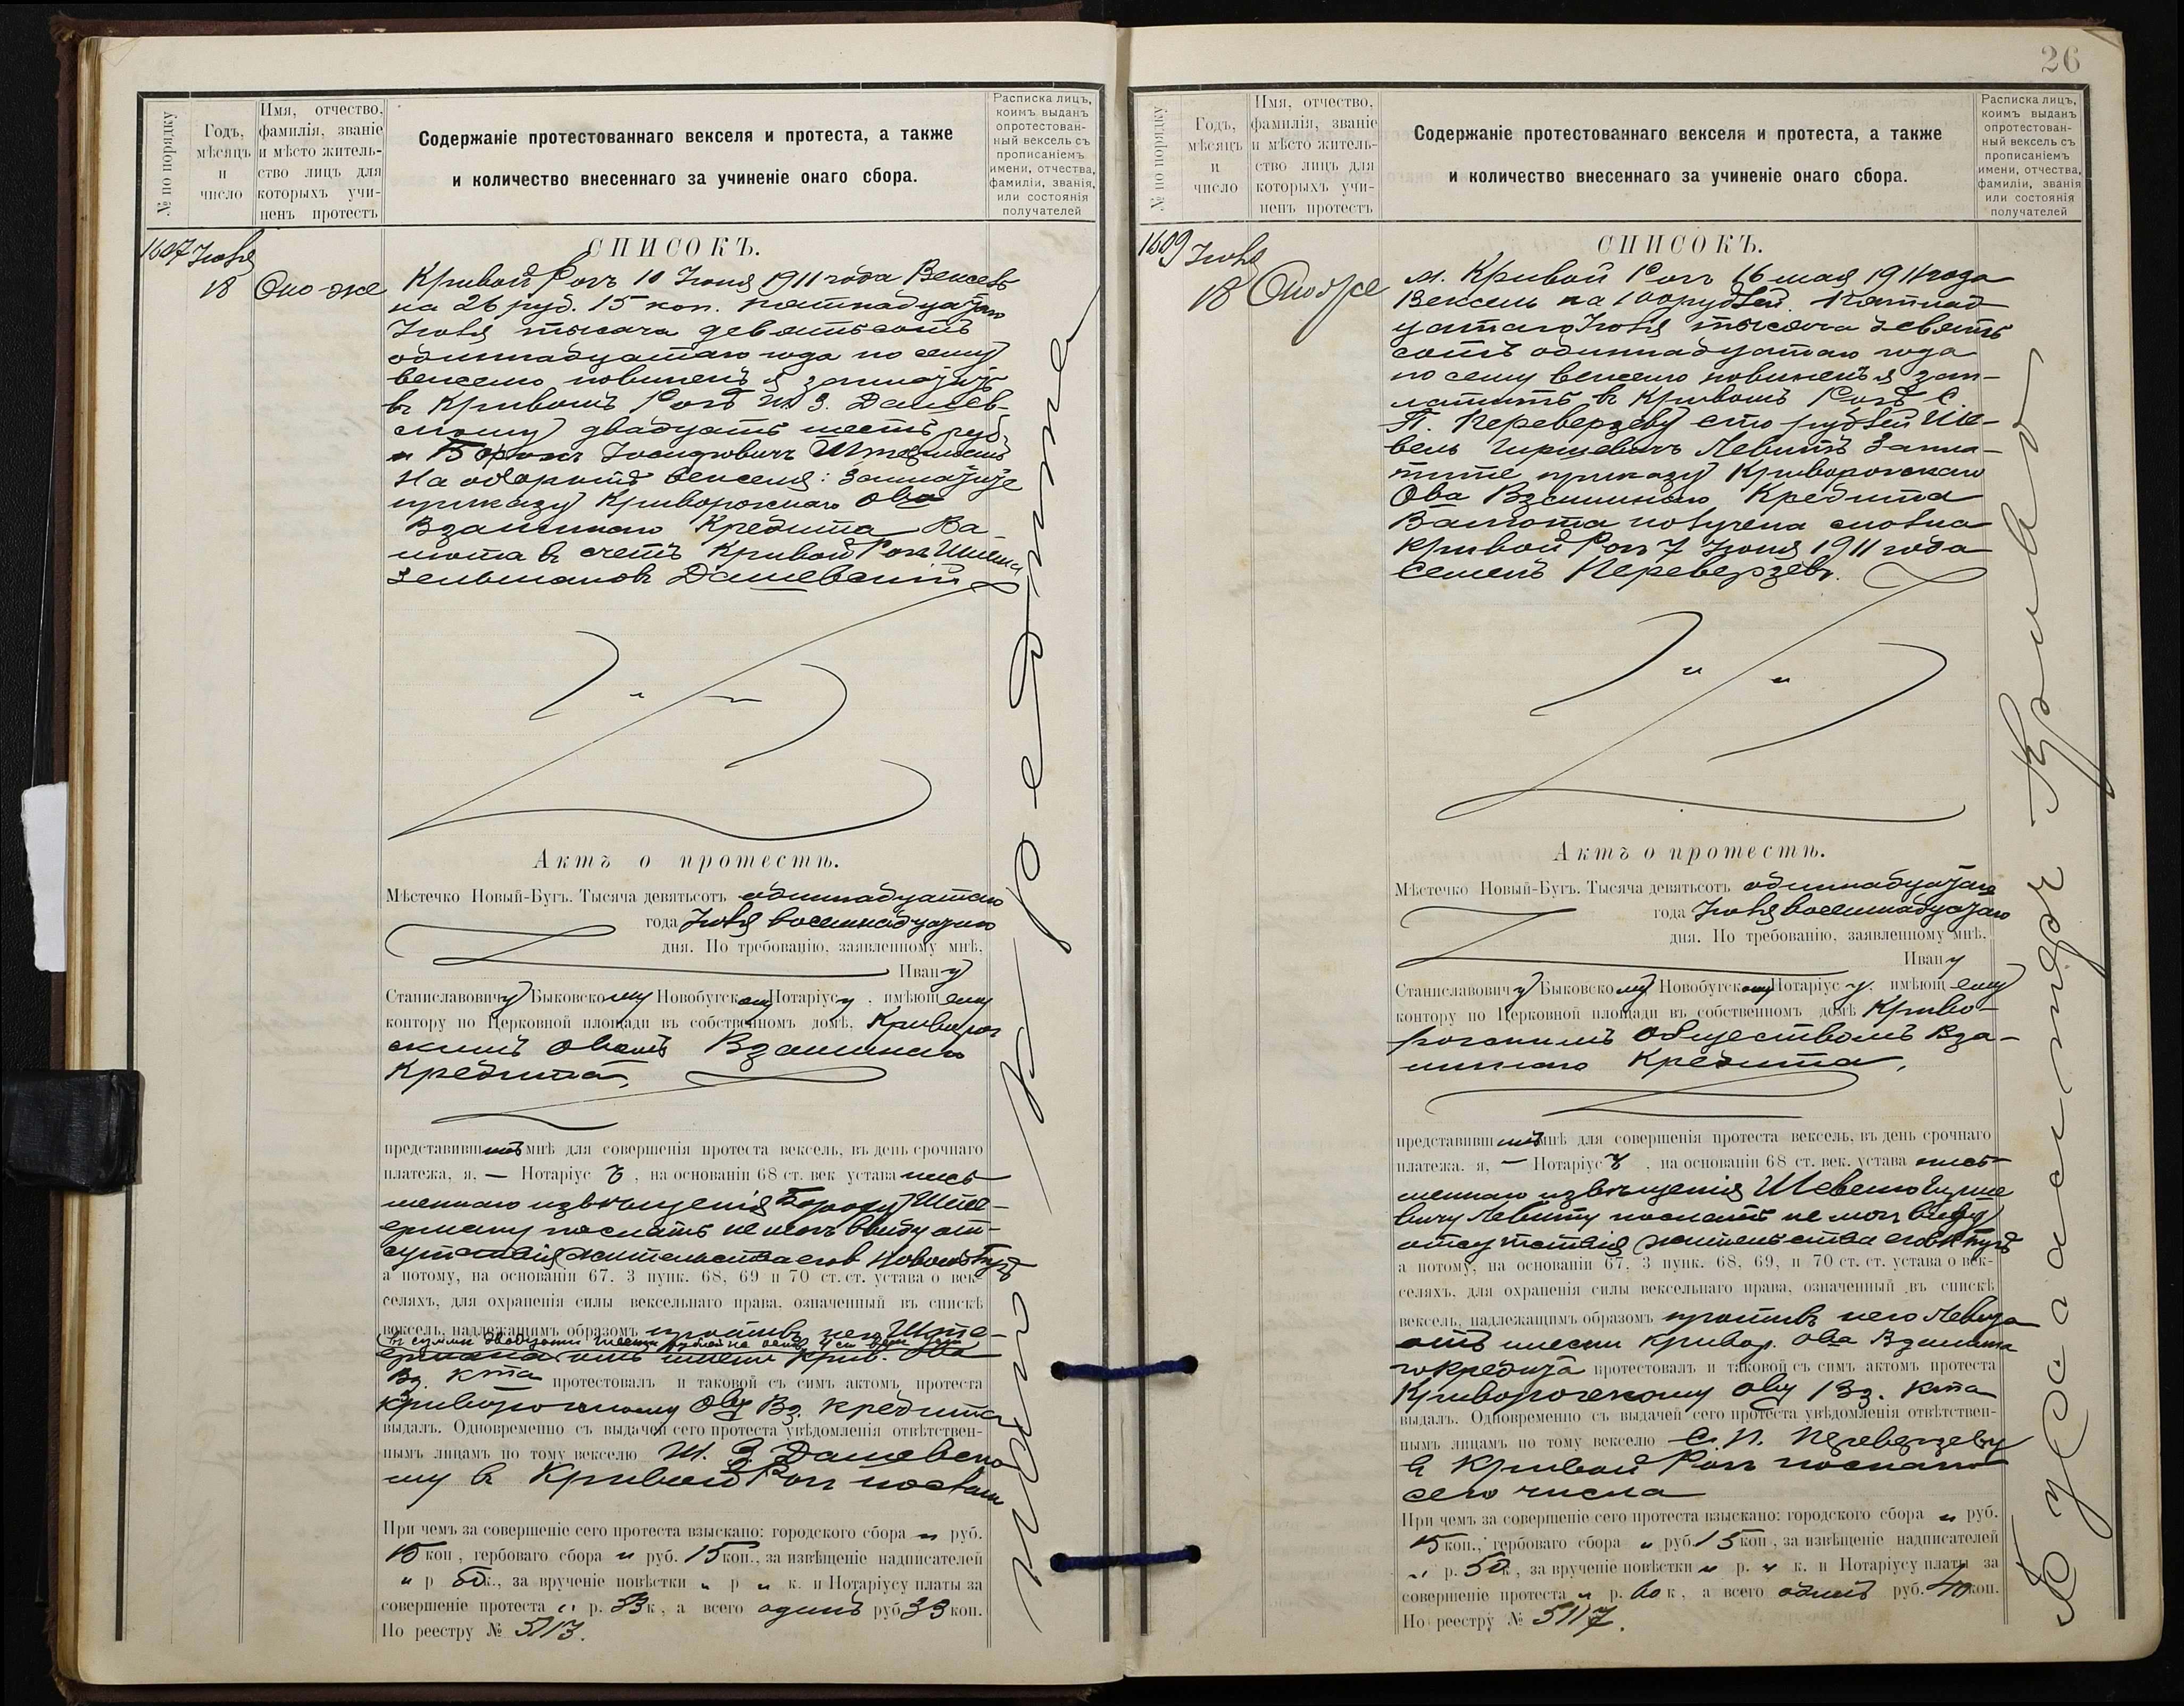 № по порядку
Годъ,
мѣсяцъ
и
число
Имя, отчество,
фамилія, званіе
и мѣсто житель-
ство лицъ для
которыхъ учи-
ненъ протестъ
Содержаніе протестованнаго векселя и протеста, а также
и количество внесеннаго за учиненіе онаго сбора.
Расписка лицъ,
коимъ выданъ
опротестован-
ный вексель съ
прописаніемъ
имени, отчества,
фамиліи, званія,
или состоянія
получателей
1607 Іюля
18 Оно-же
СПИСОКЪ.
Кривой Рогъ 10 Іюня 1911 года Вексель
на 26 руб. 15 коп. пятнадцатаго
Іюля тысяча девятьсотъ
одиннадцатаго года по сему
векселю повиненъ я заплатить
въ Кривомъ Рогѣ Ш. З. Дашев-
скому двадцать шесть руб.
На оборотѣ векселя: Заплатите
приказу Криворожскаго Ова
Взаимнаго Кредита Ва-
люта въ счетъ Кривой Рогъ Шлема
Зельмановъ Дашевскій
Актъ о протестѣ.
Мѣстечко Новый-Бугъ. Тысяча девятьсотъ одиннадцатаго
года Іюля восемнадцатаго
дня. По требованію, заявленному мнѣ,
Ивану
Станиславовичу Быковскому Новобугскому Нотаріусу, имѣющему
контору по Церковной площади въ собственномъ домѣ, Криворож
скимъ Овомъ Взаимнаго
Кредита,
представившимъ мнѣ для совершенія протеста вексель, въ день срочнаго
платежа, я, — Нотаріусъ, на основаніи 68 ст. век устава пись
меннаго извѣщенія Боруху Ште-
ерману послать не могъ ввиду от-
сутствія жительства его въ Новомъ Бугѣ
а потому, на основаніи 67. 3 пунк. 68, 69 и 70 ст. ст. устава о век-
селяхъ, для охраненія силы вексельнаго права, означенный въ спискѣ
вексель, надлежащимъ образомъ противъ него Ште-
ермана отъ имени Крив. Ова
Вз. Кта протестовалъ и таковой съ симъ актомъ протеста
Криворожскому Обву Вз. Кредита
выдалъ. Одновременно съ выдачей сего протеста увѣдомленія отвѣтствен-
нымъ лицамъ по тому векселю Ш. З. Дашевско
му въ Кривой Рогъ
При чемъ за совершеніе сего протеста взыскано: городского сбора „ руб.
15 коп, гербоваго сбора „ руб. 15 коп., за извѣщеніе надписателей
„ р 50 к., за врученіе повѣстки „ р „ к. и Нотаріусу платы за
совершеніе протеста „ р. 53 к, а всего одинъ руб 33 коп.
По реестру № 5113.
26
№ по порядку
Годъ,
мѣсяцъ
и
число
Имя, отчество,
фамилія, званіе
и мѣсто житель-
ство лицъ для
которыхъ учи-
ненъ протестъ
Содержаніе протестованнаго векселя и протеста, а также
и количество внесеннаго за учиненіе онаго сбора.
Расписка лицъ,
коимъ выданъ
опротестован-
ный вексель съ
прописаніемъ
имени, отчества,
фамиліи, званія
или состоянія
получателей
1609 Іюля
18 Оно же
СПИСОКЪ.
м. Кривой Рогъ 16 мая 1911 года
Вексель на 100 рублей. Пятнад
цатаго Іюля тысяча девять
сотъ одиннадцатаго года
по сему векселю повиненъ я зап-
латить въ Кривомъ Рогѣ С.
П. Переверзеву сто рублей Ше-
вель Гиршевичъ Левитъ Запла-
тите приказу Криворожскаго
Ова Взаимнаго Кредита
Валюта получена сполна
Кривой Рогъ 7 Іюня 1911 года
Семенъ Переверзевъ.
Актъ о протестѣ.
Мѣстечко Новый-Бугъ. Тысяча девятьсотъ одиннадцатаго
года Іюля восемнадцатаго
дня. По требованію, заявленному мнѣ,
Ивану
Станиславовичу Быковскому Новобугскому Нотаріусу, имѣющему
контору по Церковной площади въ собственномъ домѣ Криво-
рожскимъ Обществомъ Вза-
имнаго Кредита,
представившимъ мнѣ для совершенія протеста вексель, въ день срочнаго
платежа. я, — Нотаріусъ, на основаніи 68 ст. век. устава пись-
меннаго извѣщенія Шевелю Гирше
вичу Левиту послать не могъ ввиду
отсутствія жительства его въ Н Бугѣ
а потому, на основаніи 67, 3 пунк. 68, 69, и 70 ст. ст. устава о век-
селяхъ, для охраненія силы вексельнаго права, означенный въ спискѣ
вексель, надлежащимъ образомъ противъ него Левита
отъ имени Кривор. Ова Взаимна
го Кредита протестовалъ и таковой съ симъ актомъ протеста
Криворожскому Обву Вз. Кта
выдалъ. Одновременно съ выдачей сего протеста увѣдомленія отвѣтствен-
нымъ лицамъ по тому векселю С. П. Переверзеву
въ Кривой Рогъ послано
сего числа
При чемъ за совершеніе сего протеста взыскано: городского сбора „ руб.
15 коп., гербоваго сбора „ руб. 15 коп, за извѣщеніе надписателей
„ р. 50 к, за врученіе повѣстки „ р. „ к. и Нотаріусу платы за
совершеніе протеста „ р. 60 к, а всего одинъ руб. 40 коп.
По реестру № 5117.